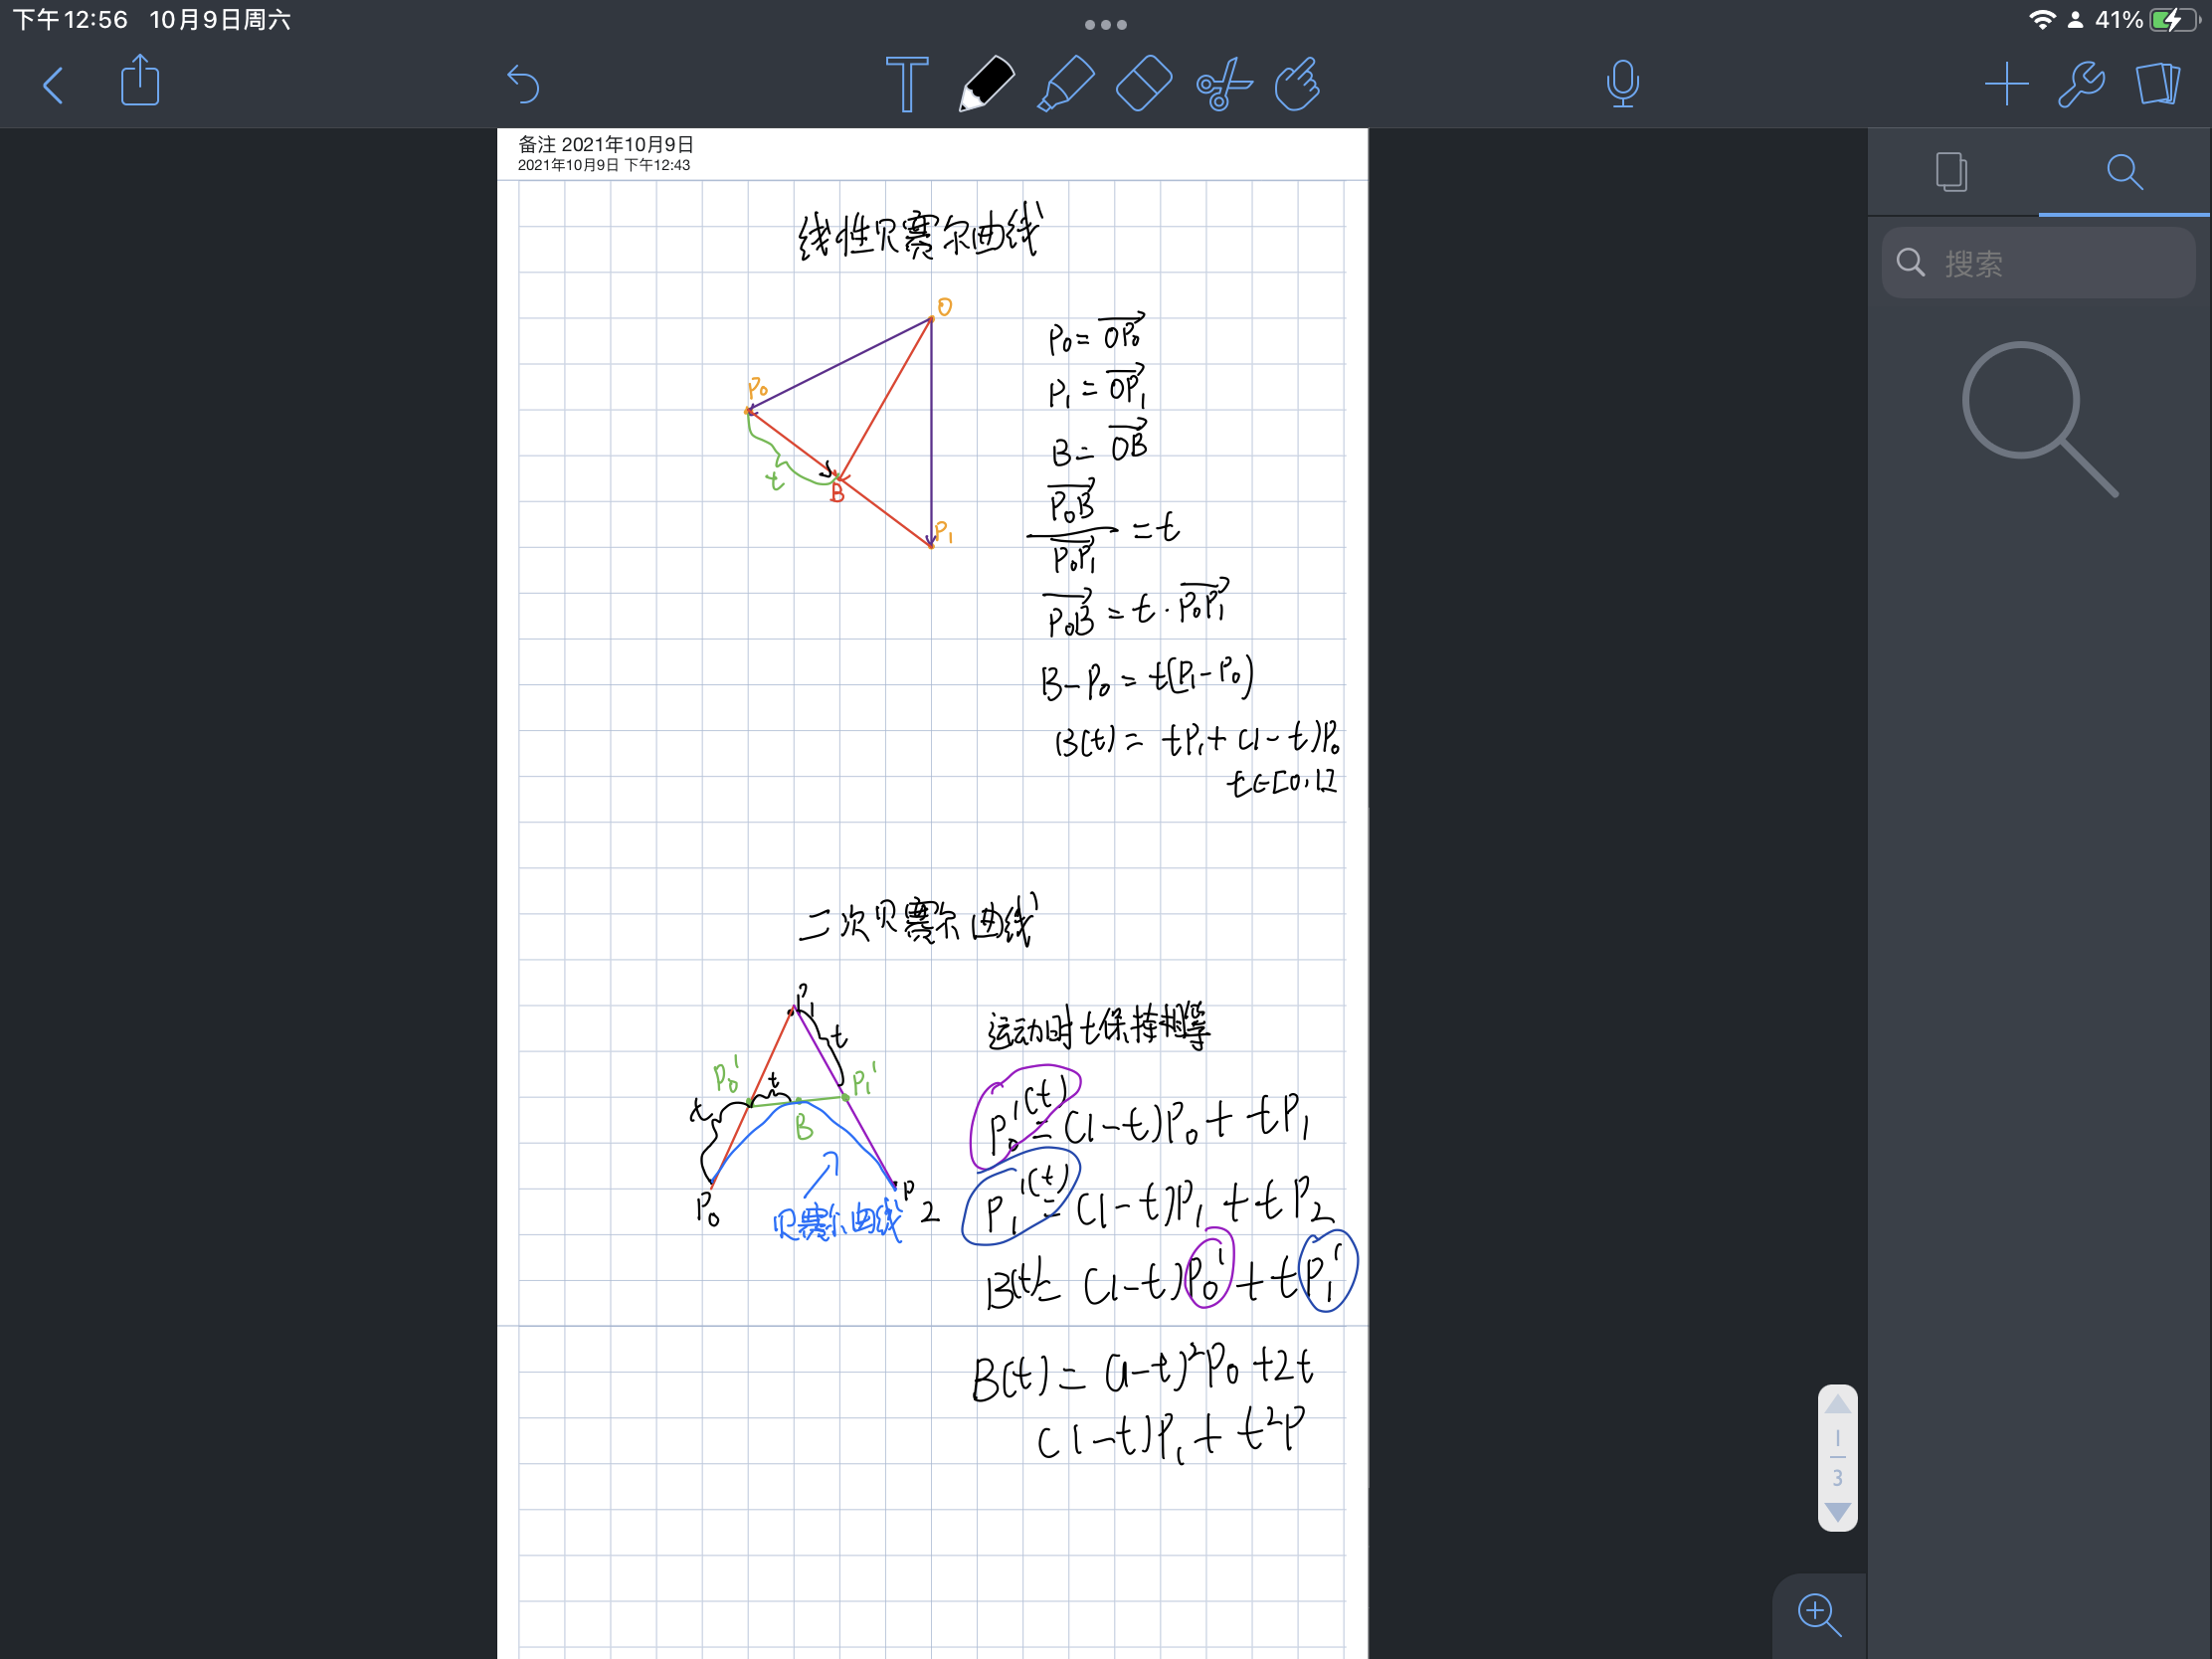 下午12:56 10月9日周六
41%
备注 2021年10月9日
2021年10月9日 下午12:43
搜索
线性贝赛尔曲线
O
P₀
t
B
P₁
P₀ = \overrightarrow{OP₀}
P₁ = \overrightarrow{OP₁}
B = \overrightarrow{OB}
\frac{\overrightarrow{P₀B}}{\overrightarrow{P₀P₁}} = t
\overrightarrow{P₀B} = t · \overrightarrow{P₀P₁}
B - P₀ = t(P₁ - P₀)
B(t) = tP₁ + (1 - t)P₀
t∈[0,1]
二次贝赛尔曲线
P₁
t
P₀'
t
P₁'
t
B
P₀
P
2
贝赛尔曲线
运动时t保持相等
P₀'(t) = (1-t)P₀ + tP₁
P₁'(t) = (1-t)P₁ + tP₂
B(t) = (1-t)P₀' + tP₁'
B(t) = (1-t)²P₀ + 2t
(1-t)P₁ + t²P
1
3